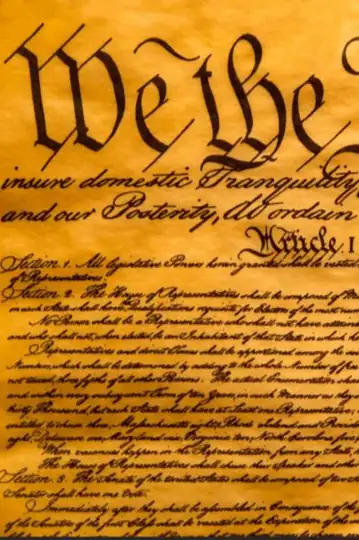 We the
insure domestic Tranquility
and our Posterity, do ordain
Article I
Section 1. All legislative Powers herein granted shall be vested
of Representatives.
Section 2. The House of Representatives shall be composed of
in each State shall have Qualifications requisite for Electors of the most
No Person shall be a Representative who shall not have
and who shall not, when elected, be an Inhabitant of that State in which
Representatives and direct Taxes shall be apportioned among the
Numbers, which shall be determined by adding to the whole Number of
not taxed, three fifths of all other Persons. The actual Enumeration shall
and within every subsequent Term of ten Years, in such Manner as they
thirty Thousand, but each State shall have at Least one Representative
entitled to chuse three, Massachusetts eight, Rhode Island and
eight, Delaware one, Maryland six, Virginia ten, North Carolina five
When vacancies happen in the Representation from any State,
The House of Representatives shall chuse their Speaker and other
Section 3. The Senate of the United States shall be composed of two
Senator shall have one Vote.
Immediately after they shall be assembled in Consequence of the
of the Senators of the first Class shall be vacated at the Expiration of the